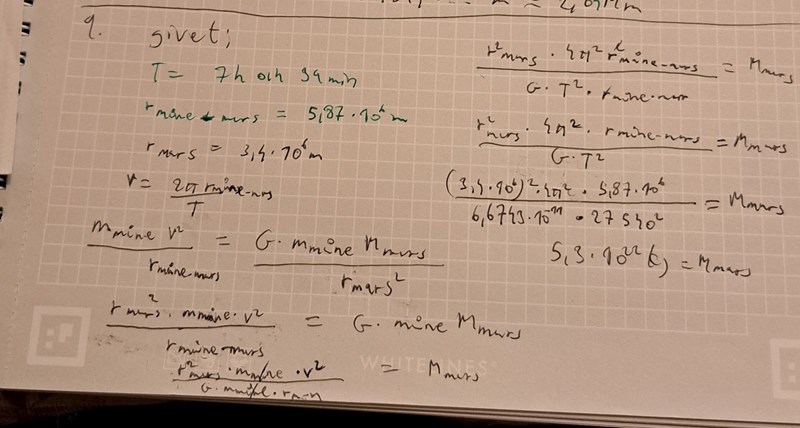 9. givet;
T = 7h och 39 min
r mine-mars = 5,87 · 10^6 m
r mars = 3,4 · 10^6 m
v = 2π r mine-mars / T
m mine v² / r mine-mars = G · m mine M mars / r mars²
r mars² · m mine · v² / r mine-mars = G · mine M mars
r² mars · m mine · v² / G · m mine · r m-m = M mars
r² mars · 4π² r² mine-mars / G · T² · r mine-mar = M mars
r² mars · 4π² · r mine-mars / G · T² = M mars
(3,4 · 10^6)² · 4π² · 5,87 · 10^6 / 6,6743 · 10^-11 · 27540² = M mars
5,3 · 10^22 kg = M mars
WHITELINES